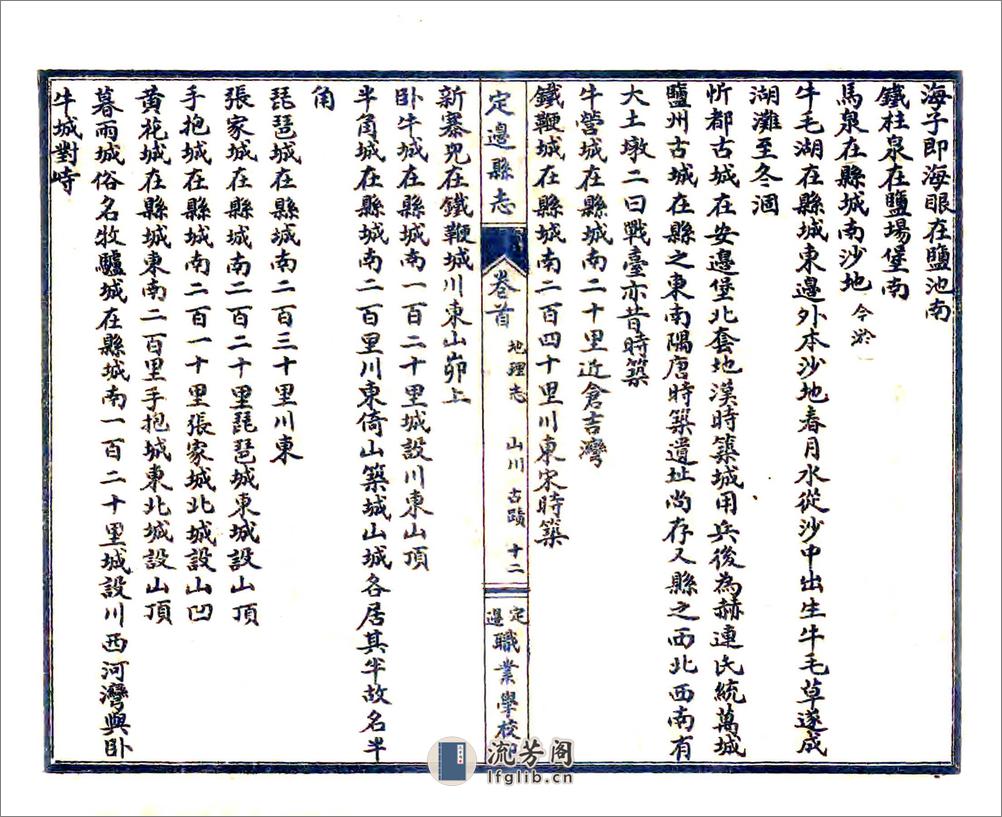 海子即海眼在鹽池南
鐵柱泉在鹽場堡南
馬泉在縣城南沙地今淤
牛毛湖在縣城東邊外本沙地春月水從沙中出生牛毛草遂成
湖灘至冬涸
忻都古城在安邊堡北套地漢時築城用兵後為赫連氏統萬城
鹽州古城在縣之東南隅唐時築遺址尚存又縣之西北西南有
大土墩二曰戰臺亦昔時築
牛營城在縣城南二十里近倉吉灣
鐵鞭城在縣城南二百四十里川東宋時築
定邊縣志 卷首 地理志 山川 古蹟 十二 定邊職業學校印
新寨兕在鐵鞭城川東山峁上
卧牛城在縣城南一百二十里城設川東山頂
半角城在縣城南二百里川東倚山築城山城各居其半故名半
角
琵琶城在縣城南二百三十里川東
張家城在縣城南二百二十里琵琶城東城設山頂
手抱城在縣城南二百一十里張家城北城設山凹
黄花城在縣城東南二百里手抱城東北城設山頂
暮雨城俗名牧驢城在縣城南一百二十里城設川西河灣與卧
牛城對峙
流芳阁
lfglib.cn